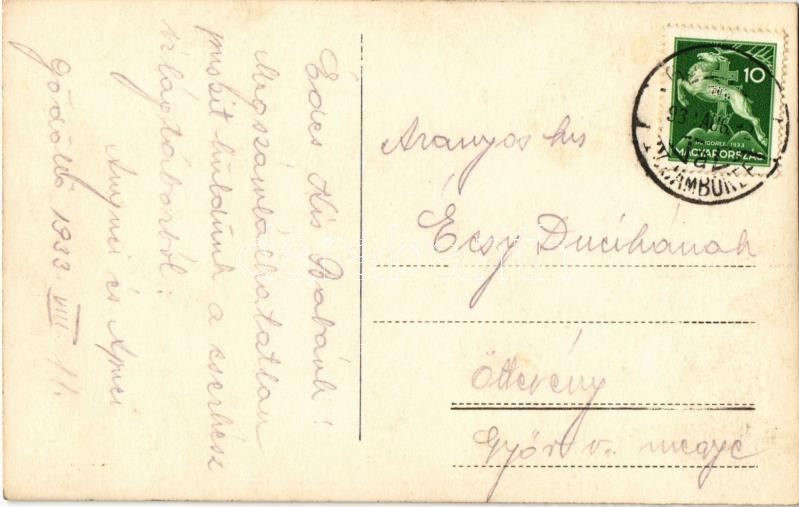 Édes Kis Babánk!
Megszámlálhatatlan
puszit küldünk a cserkész
világtáborból:
Anyuci és Apuci
Gödöllő 1933. VIII. 11.
10
JAMBOREE 1933
MAGYARORSZÁG
JAMBOREE
Aranyos kis
Écsy Ducikának
Öttevény
Győr v. megye